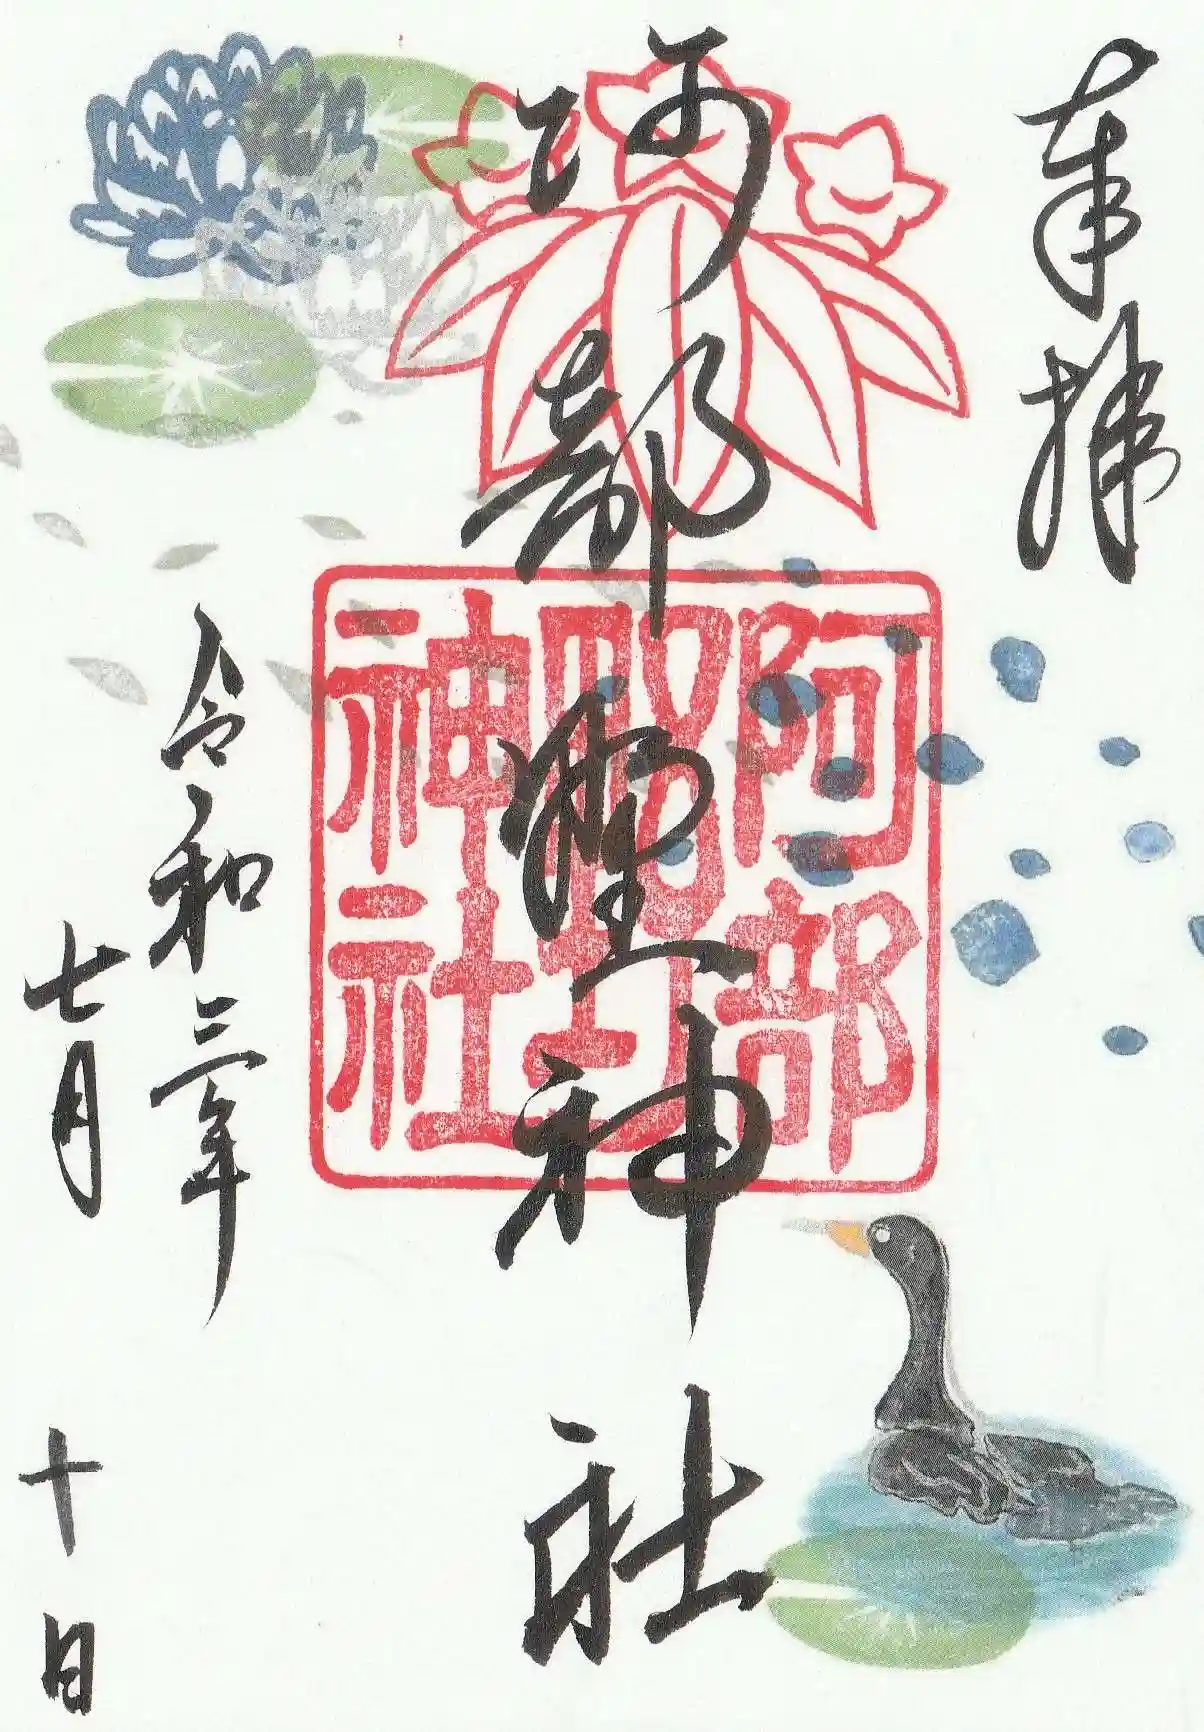 奉拝
阿部野神社
令和三年
七月十日
阿部
野
神社